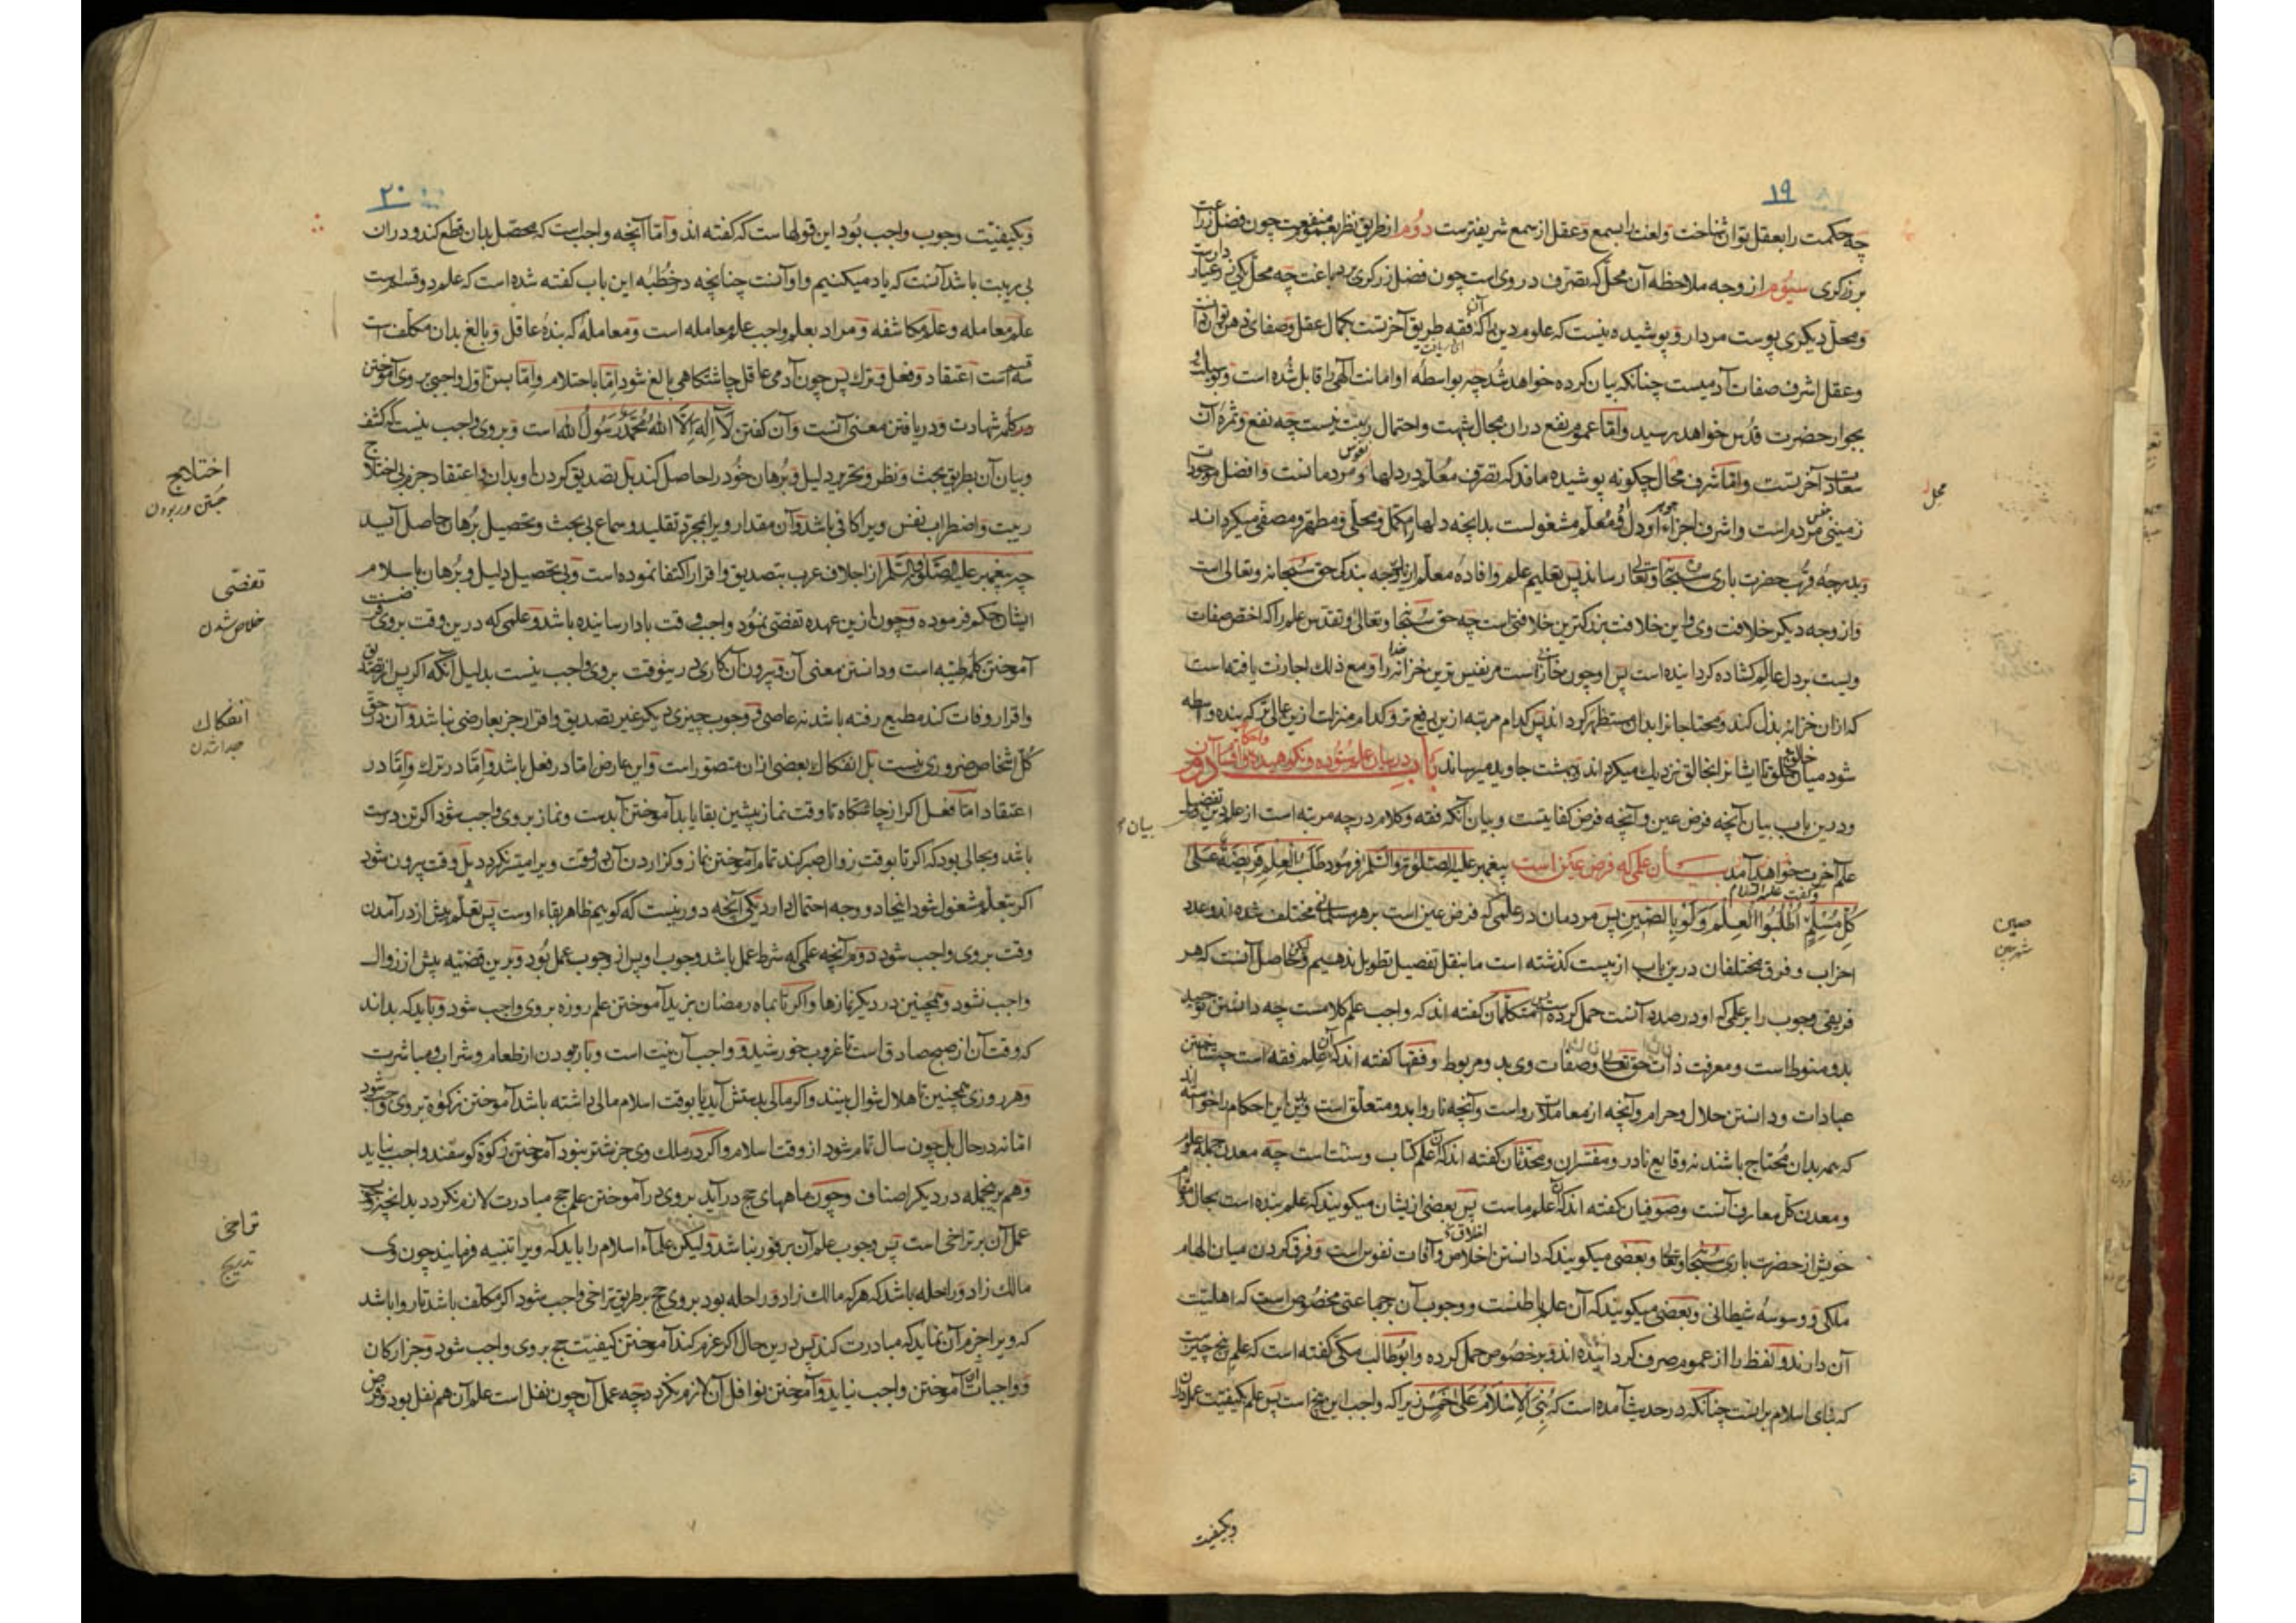 ١٩
چه حکمت را بعقل توان شناخت ولغت را بسمع وعقل از سمع شریفترست دوم از طریق نظر بعموم منفعت چون فضل زراعت
بر زرکری سیوم از وجه ملاحظه آن محل که تصرف در وی است چون فضل زرکری بر دباغت چه محل یکی زر وعیار دارست
ومحل دیکری پوست مردار وپوشیده نیست که علوم دین را که فقه طریق آخرتست بکمال عقل وصفای ذهن توان دریافت
وعقل اشرف صفات آدمیست چنانکه بیان کرده خواهد شد چه بواسطه او امانت الهی را قابل شده است وبوسیلت او
بجوار حضرت قدس خواهد رسید واما عموم نفع دران مجال شبهت واحتمال ریبت نیست چه نفع وثمره آن
سعادت آخرتست واما شرف محال چکونه پوشیده ماند که تصرف معلم در دلها ونفوس مردمانست وافضل موجودات
زمینی جنس مردم است واشرف اجزاء جوهر او دل ومعلم مشغولست بدانچه دلها را مکمل ومحلی ومطهر ومصفی میکرداند
وبدرجه قرب حضرت باری سبحانه وتعالی رساند پس تعلیم علم وافاده معلم از یکوجه بندکی حق سبحانه وتعالی است
واز وجه دیکر خلافت وی واین خلافت بزرکترین خلافتی است چه حق سبحانه وتعالی وتقدس علم را که اخص صفات
ویست بر دل عالم کشاده کردانیده است پس او چون خازنی است مر نفیس ترین خزانه خدا را ومع ذلک اجازت یافته است
که ازان خزانه بذل کند ومحتاجانرا بدان مستظهر کرداند پس کدام مرتبه ازین رفیع تر وکدام منزلت ازین عالی تر که بنده واسطه
شود میان خالق وخلق تا ایشانرا بخالق نزدیک میکرداند وبهشت جاوید میرساند باب دوم در بیان علم ستوده ونکوهیده واقسام آن واحکام
ودرین باب بیان آنچه فرض عین وآنچه فرض کفایتست وبیان آنکه فقه وکلام در چه مرتبه است از علم دین وتفضیل
علم آخرت خواهد آمد بیان علمی که فرض عین است پیغمبر علیه الصلوة والسلام فرمود طلب العلم فریضة علی
کل مسلم وکفت علیه السلام اطلبوا العلم ولو بالصین پس مردمان در علمی که فرض عین است بر هر مسلمانی مختلف شده اند وعدد
احزاب وفرق مختلفان درین باب از بیست کذشته است ما بنقل تفصیل تطویل ندهیم ولیکن حاصل آنست که هر
فریقی وجوب را بر علمی که او در صدد آنست حمل کرده است پس متکلمان کفته اند که واجب علم کلامست چه دانستن توحید
بدو منوط است ومعرفت ذات حق تعالی وصفات وی بدو مربوط وفقها کفته اند که آن علم فقه است چه شناختن
عبادات ودانستن حلال وحرام وآنچه از معاملات رواست وآنچه ناروا بدو متعلق است وبدین این احکام را خواسته اند
که همه بدان محتاج باشند نه وقایع نادر ومفسران ومحدثان کفته اند که آن علم کتاب وسنت است چه معدن جمله علوم
ومعدن کل معارف آنست وصوفیان کفته اند که آن علم ماست پس بعضی ازیشان میکویند که علم بنده است بحال ومقام
خویش از حضرت باری سبحانه وتعالی وبعضی میکویند که دانستن اخلاص وآفات نفوس است وفرق کردن میان الهام
ملکی ووسوسه شیطانی وبعضی میکویند که آن علم باطنست ووجوب آن بر جماعتی مخصوص است که اهلیت
آن دارند ولفظ را از عموم صرف کردانیده اند وبر خصوص حمل کرده وابوطالب مکی کفته است که علم پنج چیزست
که بنای اسلام برانست چنانکه در حدیث آمده است که بنی الاسلام علی خمس زیرا که واجب این پنج است پس علم کیفیت عمل دران
وبکیفیت
محل
بیان
صین
شهر چین
٢٠
وبکیفیت وجوب واجب بود این قولهاست که کفته اند واما آنچه واجب است که محصل بدان قطع کند ودران
بی ریبت باشد آنست که یاد میکنیم واو آنست چنانچه در خطبه این باب کفته شده است که علم دو قسم است
علم معامله وعلم مکاشفه ومراد بعلم واجب علم معامله است ومعامله که بنده عاقل وبالغ بدان مکلف است
سه قسم است اعتقاد وفعل وترک پس چون آدمی عاقل چاشتکاهی بالغ شود اما باحتلام واما بسن اول واجبی بر وی آموختن
دو کلمه شهادت ودریافتن معنی آنست وآن کفتن لا اله الا الله محمد رسول الله است وبر وی واجب نیست که کشف
وبیان آن بطریق بحث ونظر وتحریر دلیل وبرهان خود را حاصل کند بل تصدیق کردن او بدان واعتقاد جزم بی اختلاج
ریبت واضطراب نفس ویرا کافی باشد وآن مقدار ویرا بمجرد تقلید وسماع بی بحث وتحصیل برهان حاصل آید
چه پیغمبر علیه الصلوة والسلم از اجلاف عرب بتصدیق واقرار اکتفا نموده است وبی تحصیل دلیل وبرهان باسلام
ایشان حکم فرموده وچون ازین عهده تفصی نمود واجب وقت بادا رسانیده باشد وعلمی که درین وقت بر وی فرضست
آموختن کلمه طیبه است ودانستن معنی آن وبیرون آن کاری درینوقت بر وی واجب نیست بدلیل آنکه اکر پس از تصدیق
واقرار وفات کند مطیع رفته باشد نه عاصی ووجوب چیزی دیکر غیر تصدیق واقرار جز بعارضی نباشد وآن در حق
کل اشخاص ضروری نیست بل انفکاک بعضی ازان متصور است واین عارض اما در فعل باشد واما در ترک واما در
اعتقاد اما فعل اکر از چاشتکاه تا وقت نماز پیشین بقا یابد آموختن آبدست ونماز بر وی واجب شود اکر تن درست
باشد وبحالی بود که اکر تا بوقت زوال صبر کند تمام آموختن نماز وکزاردن آن در وقت ویرا میسر نکردد بل وقت بیرون شود
اکر بتعلم مشغول شود اینجا دو وجه احتمال دارد یکی آنچه دور نیست که کوییم ظاهر بقاء اوست پس تعلم پیش از درآمدن
وقت بر وی واجب شود دوم آنچه علمی که شرط عمل باشد وجوب او پس از وجوب عمل بود وبرین قضیه پیش از زوال
واجب نشود وهمچنین در دیکر نمازها واکر تا بماه رمضان بزید آموختن علم روزه بر وی واجب شود وباید که بداند
که وقت آن از صبح صادق است تا غروب خورشید وواجب آن نیت است وباز بودن از طعام وشراب ومباشرت
وهر روزی همچنین تا هلال شوال بیند واکر مالی بدستش آید یا بوقت اسلام مالی داشته باشد آموختن زکوة بر وی واجب شود
اما نه در حال بل چون سال تمام شود از وقت اسلام واکر در ملک وی جز شتر نبود آموختن زکوة کوسفند واجب نیاید
وهم برینجمله در دیکر اصناف وچون ماههای حج درآید بر وی در آموختن علم حج مبادرت لازم نکردد بدانچه
عمل آن بر تراخی است پس وجوب علم آن بر فور نباشد ولیکن علماء اسلام را باید که ویرا تنبیه فرمایند چون وی
مالک زاد وراحله باشد که هر که مالک زاد وراحله بود بر وی حج بر طریق تراخی واجب شود اکر مکلف باشد تا روا باشد
که ویرا حزم آن نماید که مبادرت کند پس درین حال اکر عزم کند آموختن کیفیت حج بر وی واجب شود وجز ارکان
وواجبات آن آموختن واجب نیاید وآموختن نوافل آن لازم نکردد چه عمل آن چون نفل است علم آن هم نفل بود وفرض
اختلاج
جستن وربودن
تفصی
خلاص شدن
انفکاک
جدا شدن
تراخی
تدریج